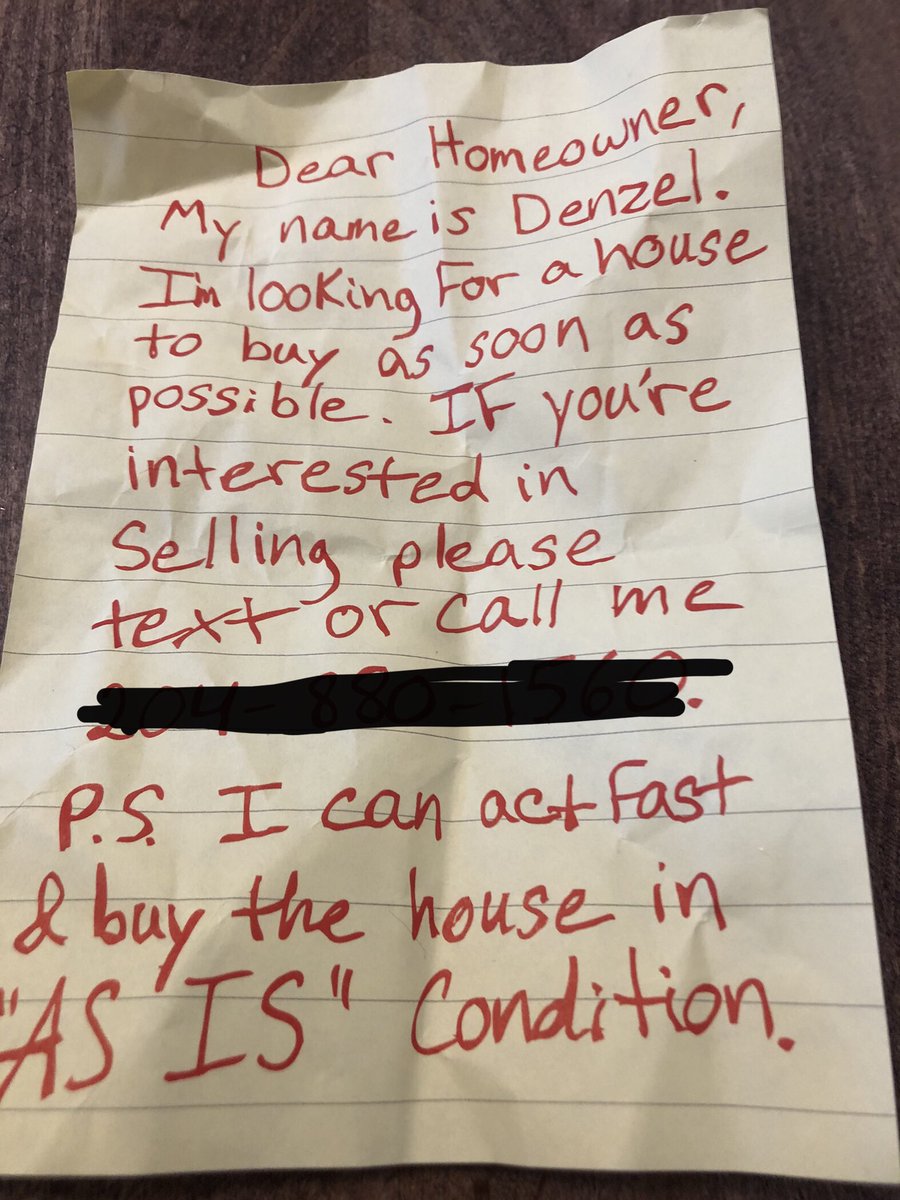 Dear Homeowner,
My name is Denzel.
I'm looking For a house
to buy as soon as
possible. IF you're
interested in
Selling please
text or call me
P.S. I can act Fast
& buy the house in
"AS IS" Condition.